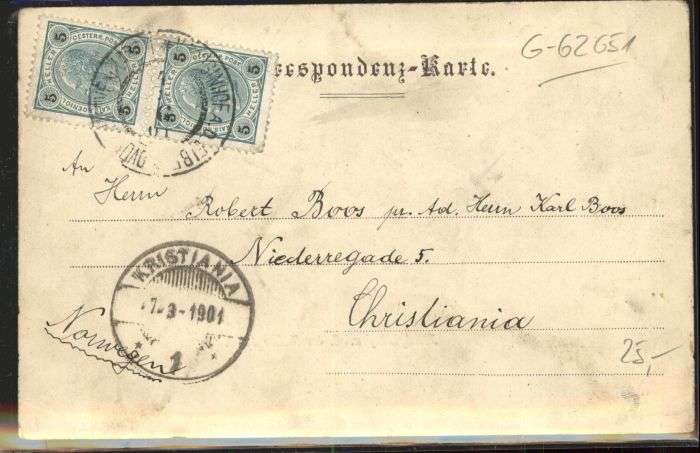 G-62651
respondenz-Karte.
5 5
OESTERR. POST
5 5
An
Herrn Robert Boos pr. Ad. Herrn Karl Boos
Niederregade 5.
Christiania
Norwegen
KRISTIANIA
7.3-1901
1
25,-